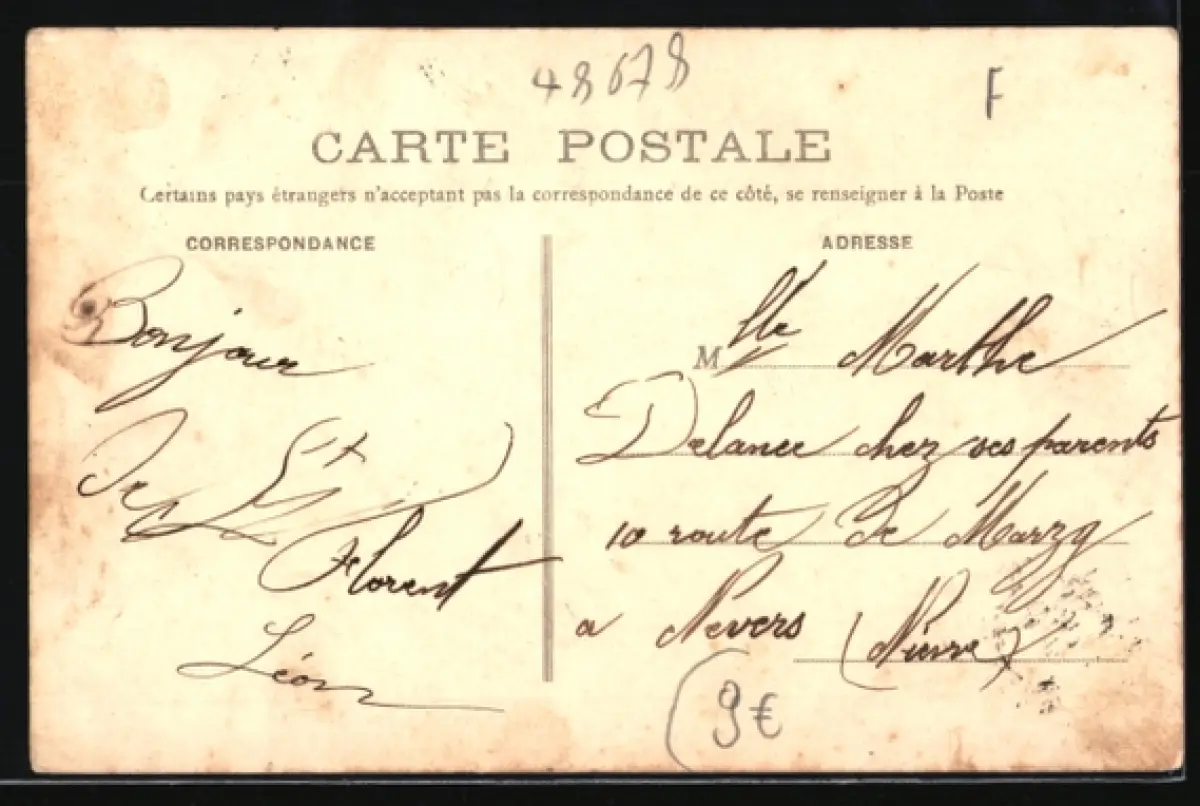 48678
F
CARTE POSTALE
Certains pays étrangers n'acceptant pas la correspondance de ce côté, se renseigner à la Poste
CORRESPONDANCE
Bonjour
De St
Florent
Léon
ADRESSE
Mlle Marthe
Delanee chez ses parents
10 route De Marzy
a Nevers (Nièvre)
9€